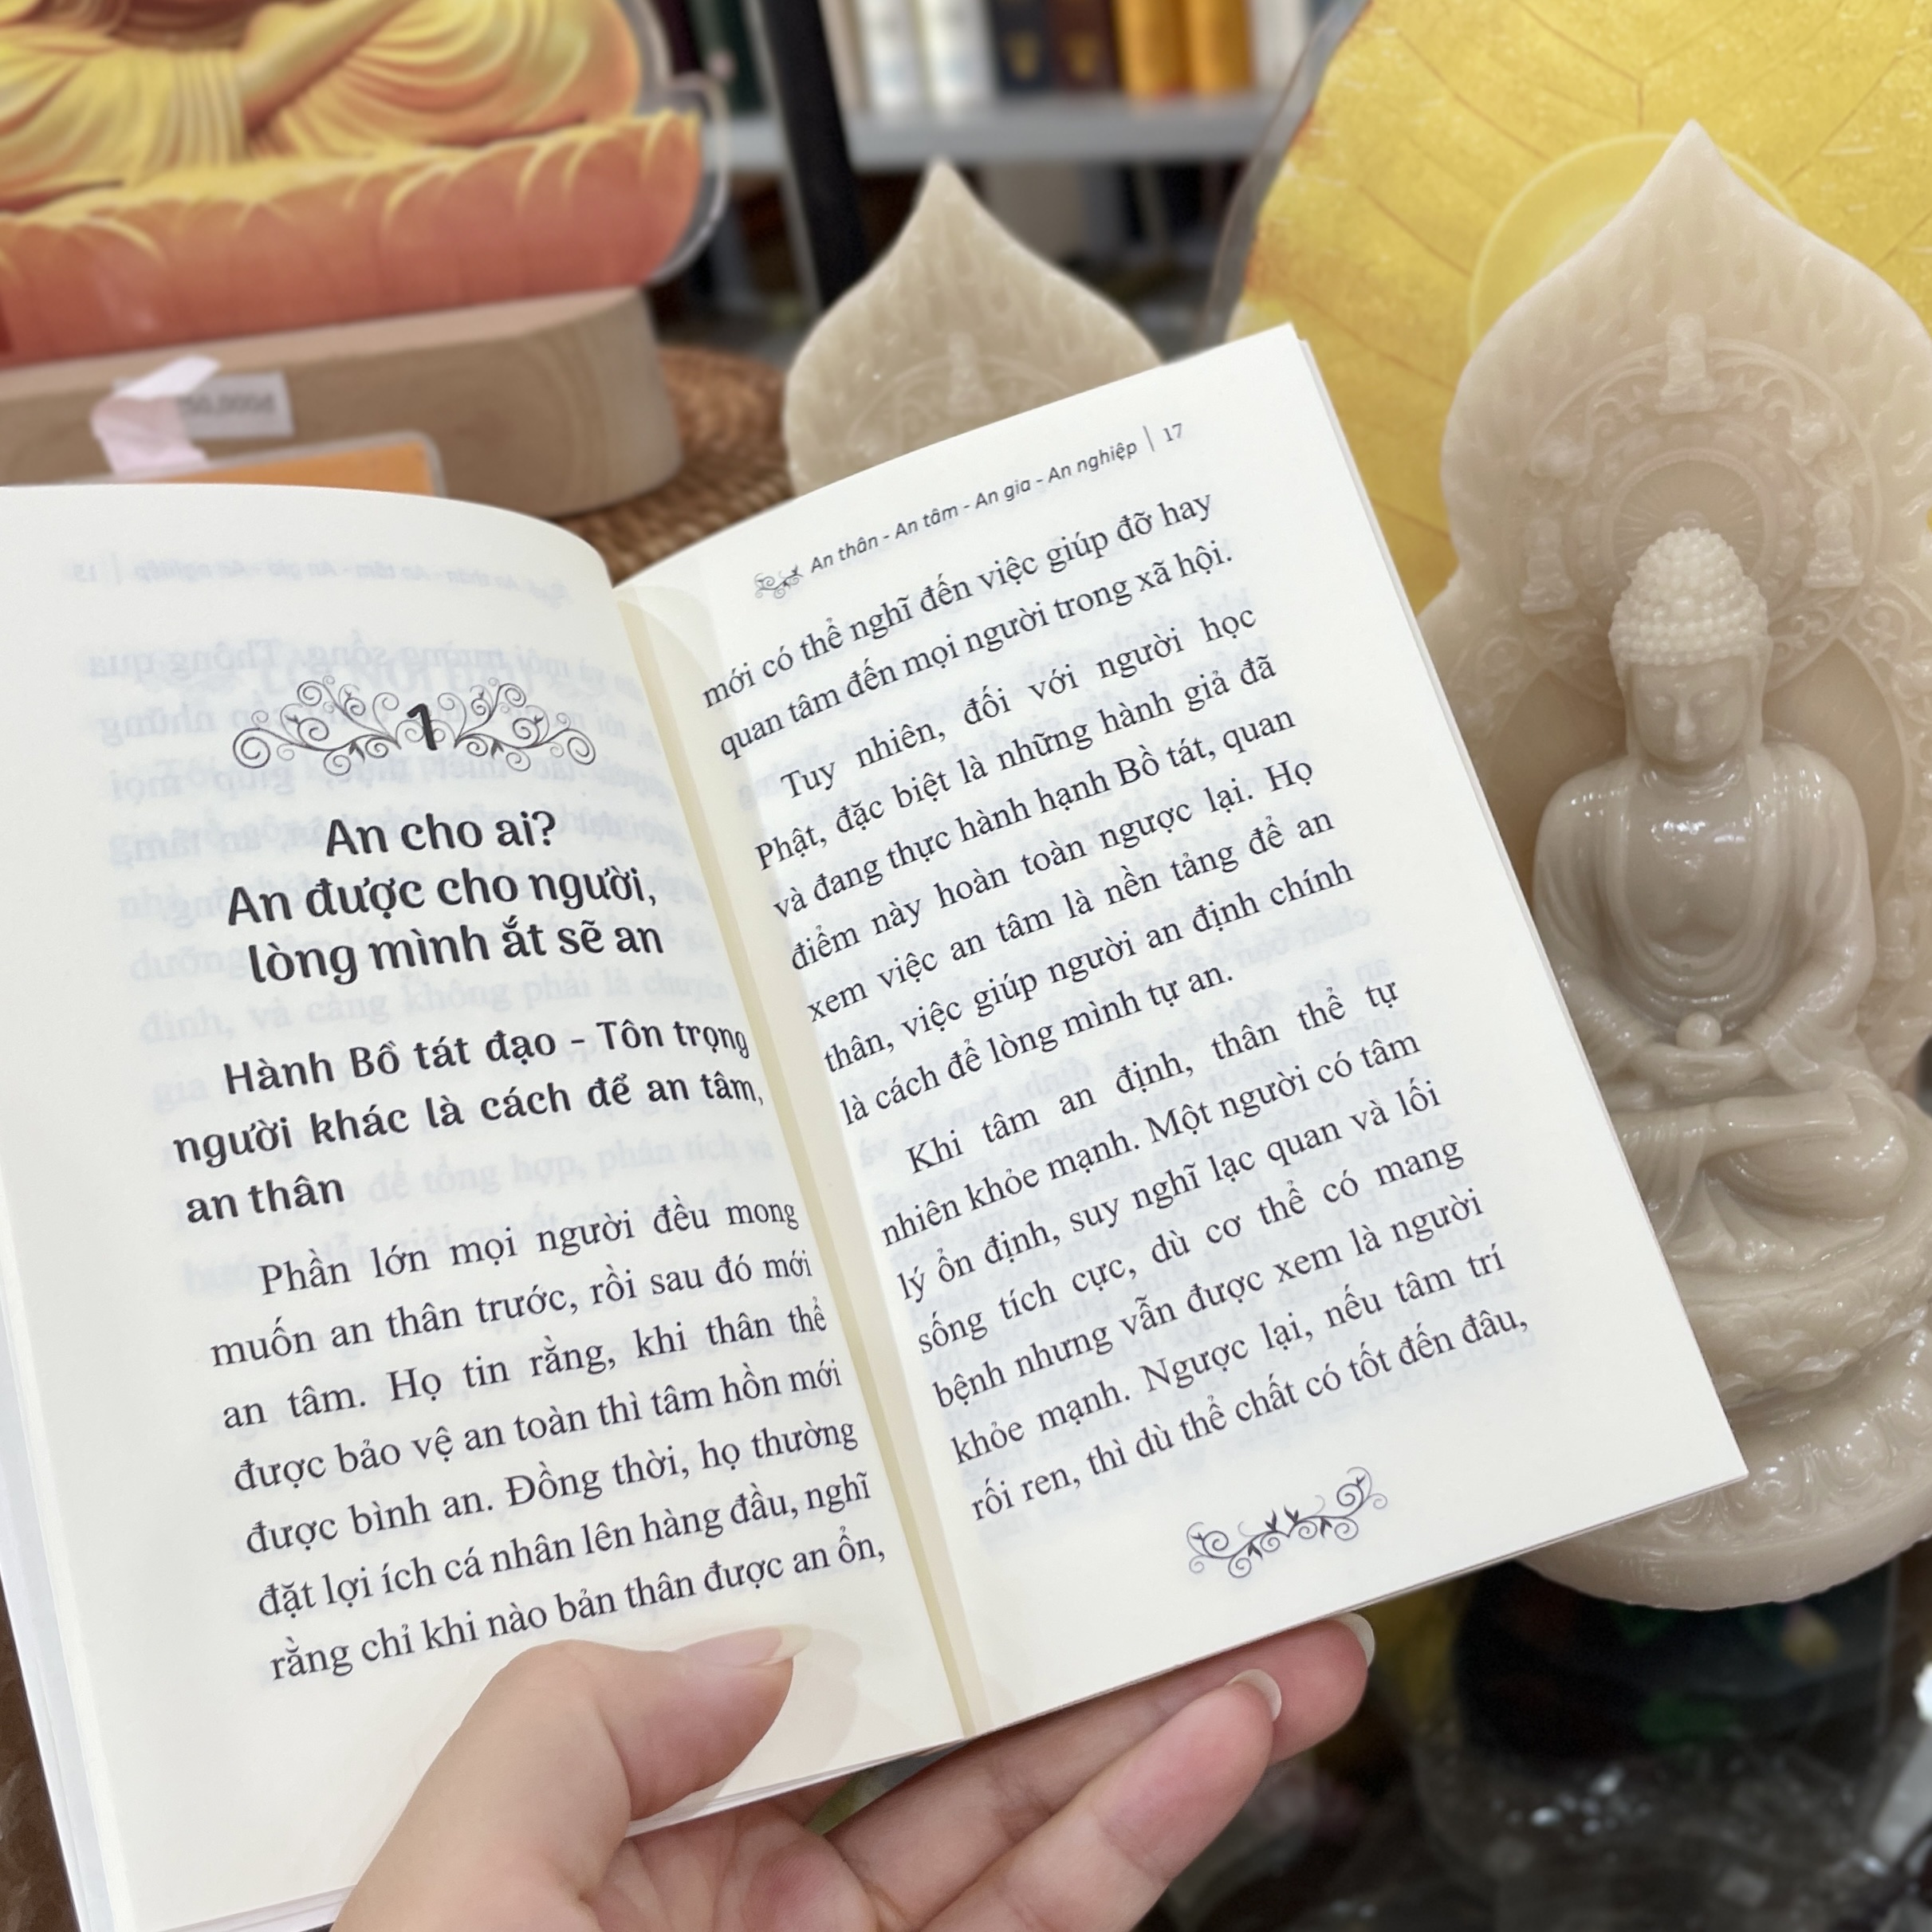 1
An cho ai?
An được cho người,
lòng mình ắt sẽ an
Hành Bồ tát đạo - Tôn trọng
người khác là cách để an tâm,
an thân
Phần lớn mọi người đều mong
muốn an thân trước, rồi sau đó mới
an tâm. Họ tin rằng, khi thân thể
được bảo vệ an toàn thì tâm hồn mới
được bình an. Đồng thời, họ thường
đặt lợi ích cá nhân lên hàng đầu, nghĩ
rằng chỉ khi nào bản thân được an ổn,
An thân - An tâm - An gia - An nghiệp | 17
mới có thể nghĩ đến việc giúp đỡ hay
quan tâm đến mọi người trong xã hội.
Tuy nhiên, đối với người học
Phật, đặc biệt là những hành giả đã
và đang thực hành hạnh Bồ tát, quan
điểm này hoàn toàn ngược lại. Họ
xem việc an tâm là nền tảng để an
thân, việc giúp người an định chính
là cách để lòng mình tự an.
Khi tâm an định, thân thể tự
nhiên khỏe mạnh. Một người có tâm
lý ổn định, suy nghĩ lạc quan và lối
sống tích cực, dù cơ thể có mang
bệnh nhưng vẫn được xem là người
khỏe mạnh. Ngược lại, nếu tâm trí
rối ren, thì dù thể chất có tốt đến đâu,